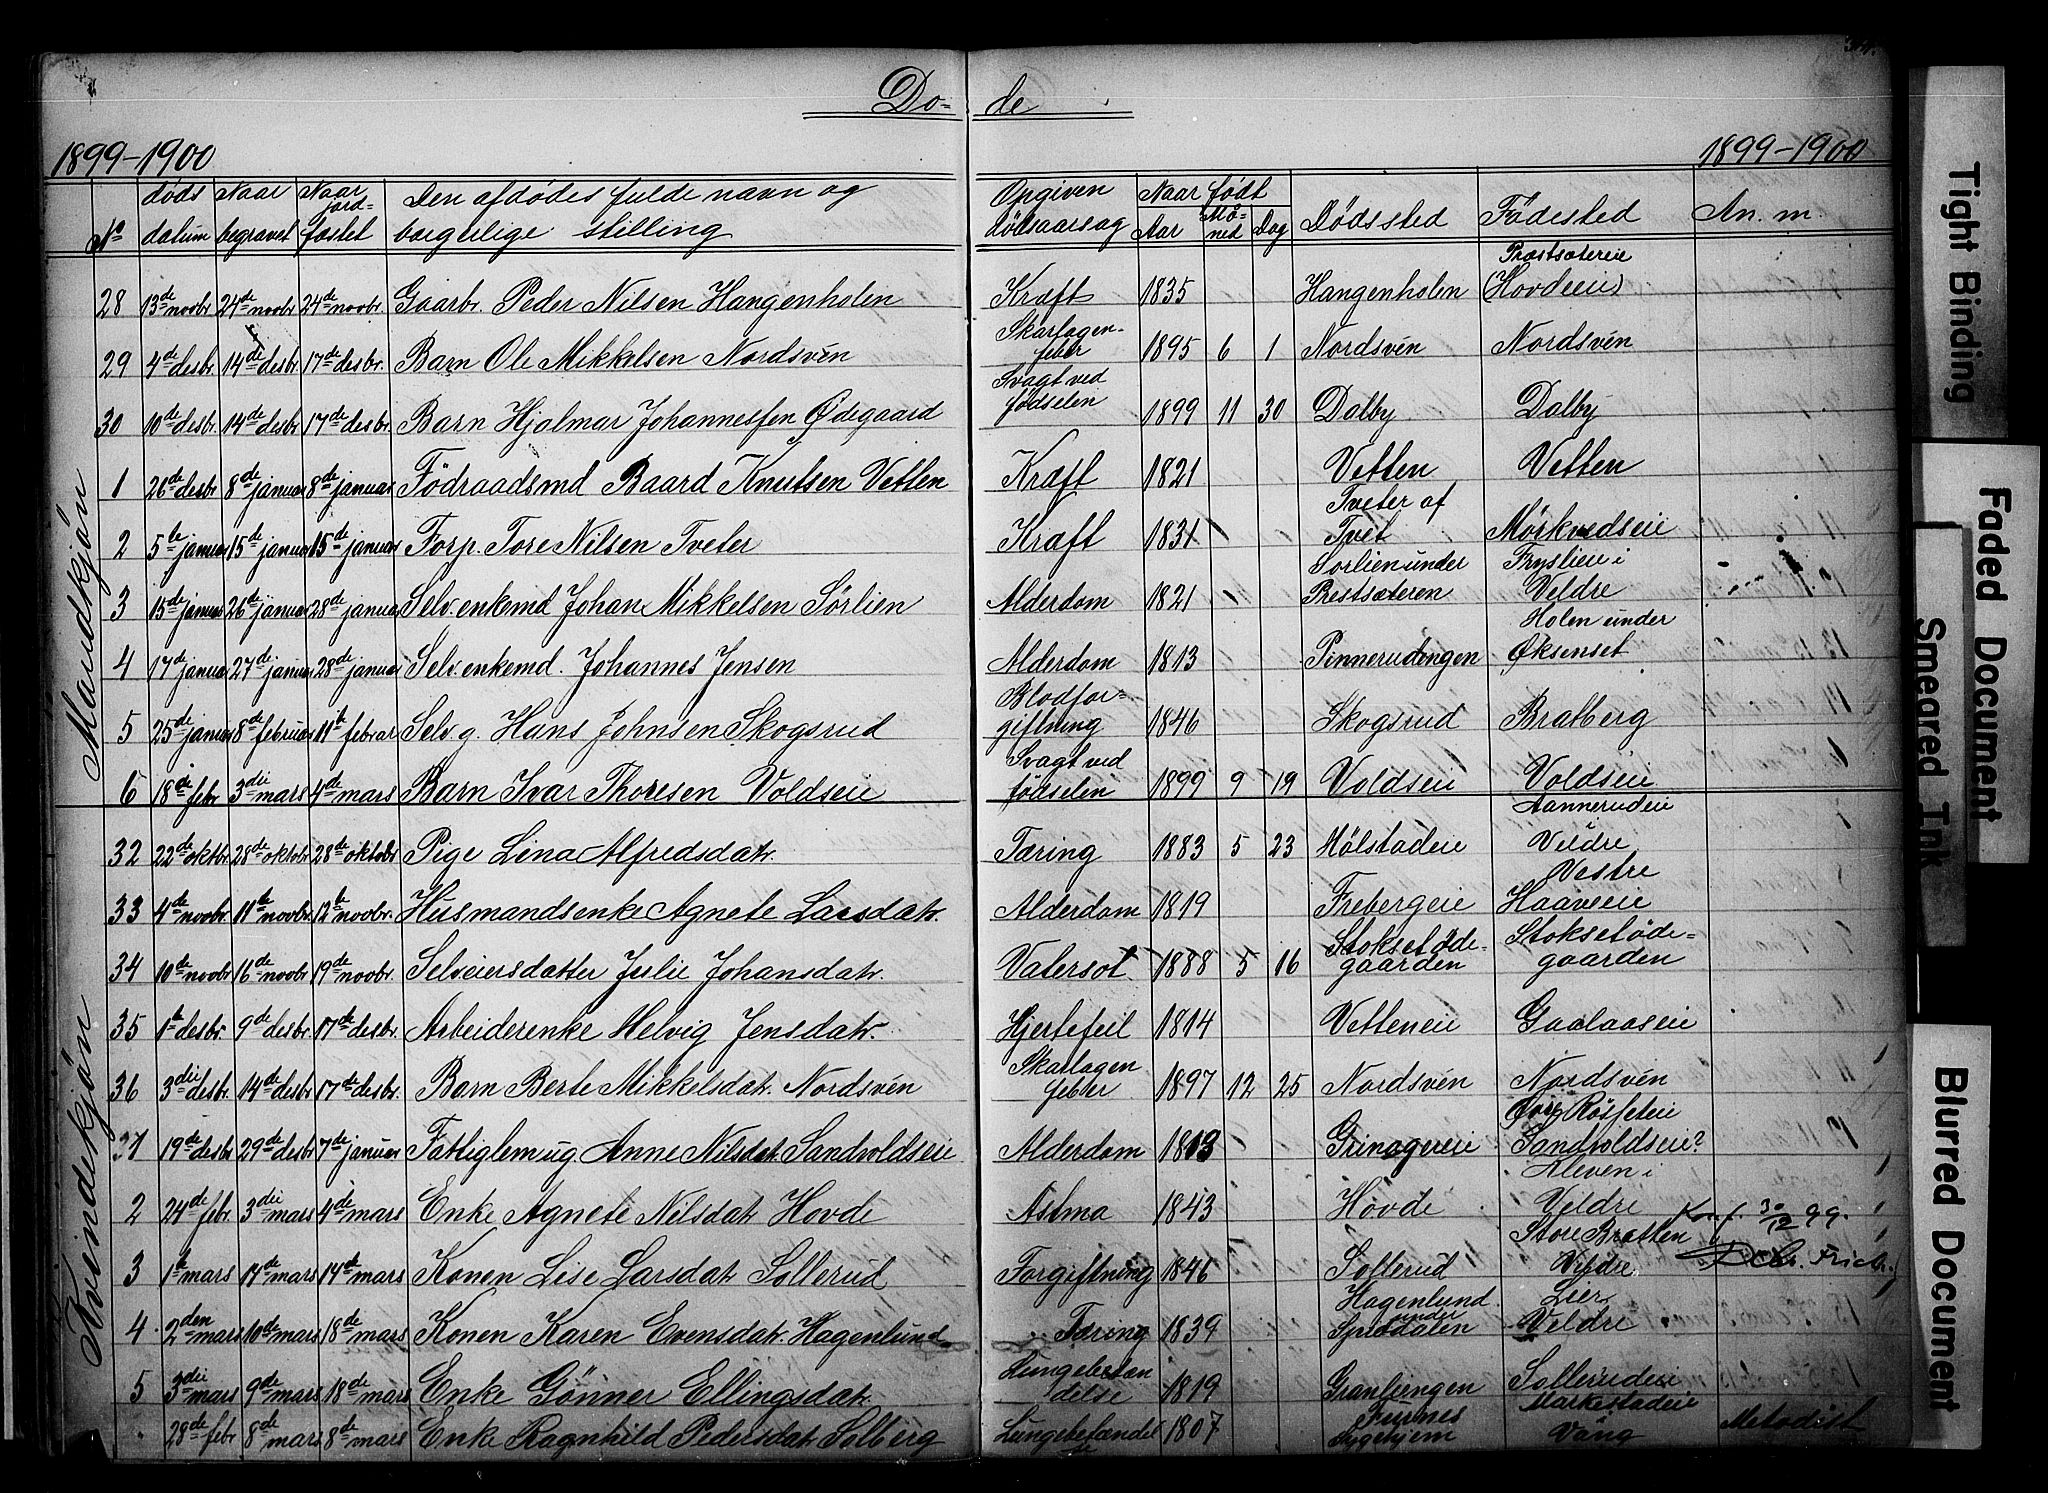 Dø= de
1899-1900 1899-1900
No døds datum Naar begravet Naar jord-fæstet Den afdødes fulde navn og borgerlige stilling Opgiven dødsaarsag Naar født Aar Må-ned Dag Dødssted Fødested An. m.
Mandkjøn
28 13de novbr 24de novbr 24de novbr. Gaarbr. Peder Nilsen Hangenholen Kræft 1835 Hangenholen Præstsætereie (Hovdeeie)
29 4de desbr 14de desbr 17de desbr. Barn Ole Mikkelsen Nordsvén Skarlagen-feber 1895 6 1 Nordsvén Nordsvén
30 10de desbr. 14de desbr 17de desbr Barn Hjalmar Johannessen Ødegaard Svagt ved fødselen 1899 11 30 Dalby Dalby
1 26de desbr 8de januar 8de januar Födraadsmd Baard Knutsen Vetten Kræft 1821 Vetten Vetten
2 5te januar 15de januar 15de januar Forp. Tore Nilsen Tveter Kræft 1831 Tveter af Tvet Mörkvedseie
3 15de januar 26de januar 28de januar Selv. enkemd Johan Mikkelsen Sörlien Alderdom 1821 Sorlien under Prestsæteren Fryslien i Veldre
4 17de januar 27de januar 28de januar Selv. enkemd. Johannes Jensen Alderdom 1813 Pinnerudengen Holen under Øksenset
5 25de januar 8de februar 11te febrar Selv. g. Hans Johnsen Skogsrud Blodfor=giftning 1846 Skogsrud Bratberg
6 18de febr 3die mars 4de mars Barn Ivar Thoresen Voldseie Svagt ved födselen 1899 9 19 Voldseie Voldseie
Kvindekjøn
32 22de oktbr. 28de oktobr 28de oktobr Pige Lina Alfredsdatr. Tæring 1883 5 23 Mölstadeie Aannerudeie Veldre
33 4de novbr. 11te novbr 12te novbr. Husmandsenke Agnete Larsdatr. Alderdom 1819 Frebergeie Vestre Haaveeie
34 10de novbr 16de novbr 19de novbr. Selveiersdatter Julie Johansdatr. Vatersot 1888 5 16 Stoksetöde-gaarden Stoksetøde=gaarden
35 1te desbr. 9de desbr 17de desbr. Arbeiderenke Helvig Jensdatr. Hjertefeil 1814 Vetteneie Gaalaaseie
36 3die desbr 14de desbr 17de desbr. Barn Berte Mikkelsdatr. Nordsvén Skarlagen feber 1897 12 25 Nordsvén Nordsvén
37 19de desbr 29de desbr 7de januar Fattiglem ug. Anne Nilsdatr. Sandvoldseie Alderdom 1813 Grinagereie Sandvoldseie?
2 24de febr. 3die mars 4de mars Enke Agnete Nilsdatr. Hovde Astma 1843 Hovde Aleven i Veldre
Konf. 30/12 99.
3 1te mars 14de mars 14de mars Konen Lise Larsdatr Sollerud Forgiftning 1846 Sollerud Store Bratten Veldre
4 2den mars 10de mars 18de mars Konen Karen Evensdatr. Hagenlund Tæring 1839 Hagenlund under Sprödalen Lier Veldre
5 3die mars 9de mars 18de mars Enke Gönner Ellingsdatr. Lungebetæn delse 1819 Granliengen Sollerudeie
28de febr 8de mars 8de mars Enke Ragnhild Pedersdatr Solberg Lungebetændel 1807 Furnes Sygehjem Markestadeie Vang Metodist
Tight Binding
Faded Document
Smeared Ink
Blurred Document